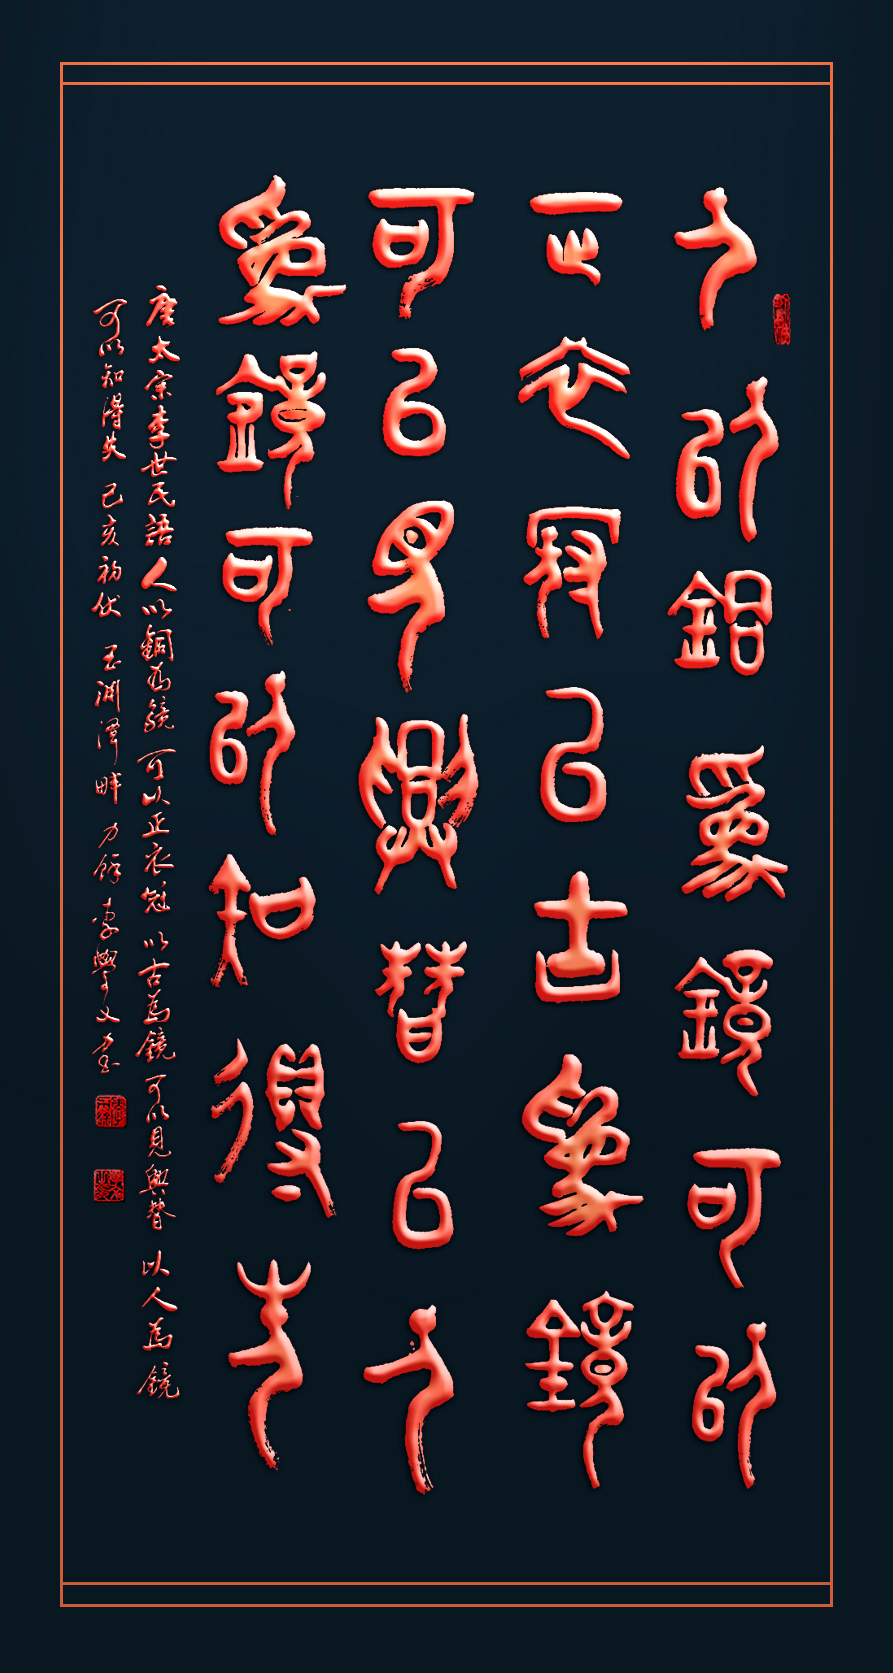 人以銅為鏡可以
正衣冠以古為鏡
可以見興替以人
為鏡可以知得失
唐太宗李世民語 人以銅為鏡 可以正衣冠 以古為鏡 可以見興替 以人為鏡
可以知得失 己亥初伏 玉淵潭畔 力餘 李學文